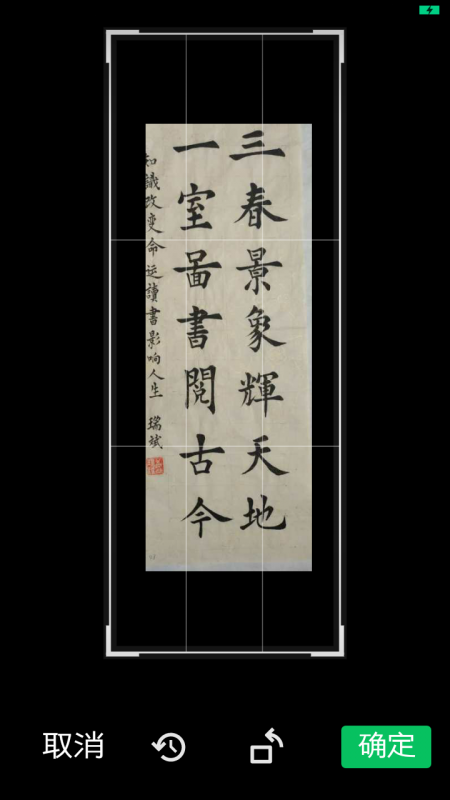 三春景象輝天地
一室啚書閱古今
知識改變命运讀書影响人生 瑞斌
取消
确定